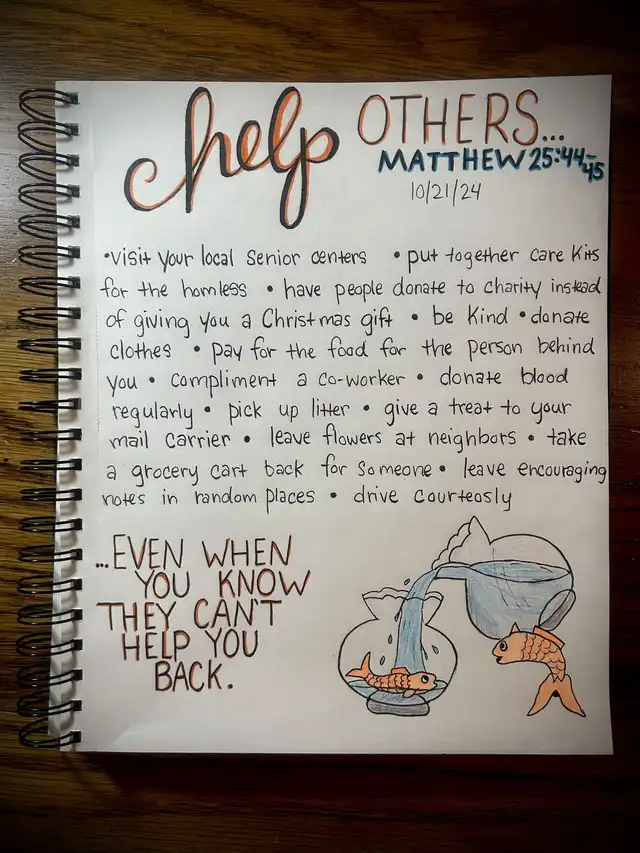 help OTHERS...
MATTHEW 25:44-45
10/21/24
•visit your local senior centers •put together care kits
for the homless • have people donate to charity instead
of giving you a Christmas gift • be kind •donate
clothes • pay for the food for the person behind
you • compliment a co-worker • donate blood
regularly • pick up litter • give a treat to your
mail carrier • leave flowers at neighbors • take
a grocery cart back for someone • leave encouraging
notes in random places • drive courteosly
...EVEN WHEN
YOU KNOW
THEY CAN'T
HELP YOU
BACK.